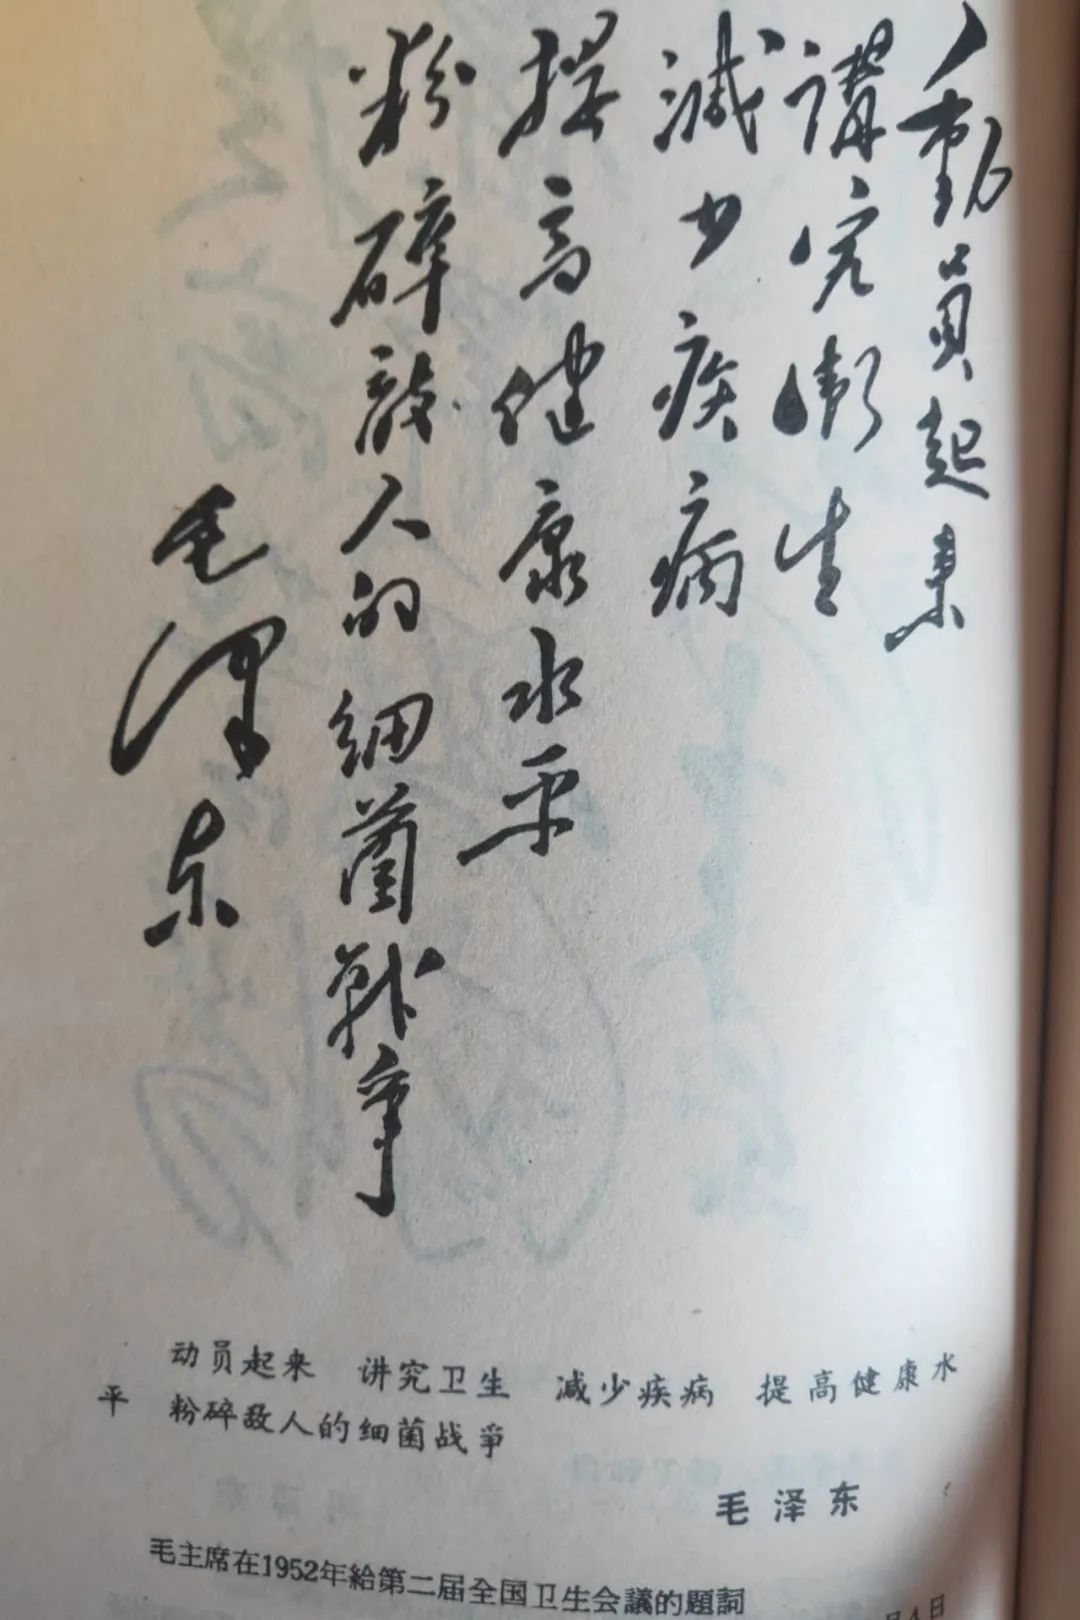 動員起来
講究衛生
減少疾病
提高健康水平
粉碎敌人的细菌战争
毛澤东
动员起来 讲究卫生 减少疾病 提高健康水
平 粉碎敌人的细菌战爭
毛泽东
毛主席在1952年給第二届全国卫生会議的題詞
月4日